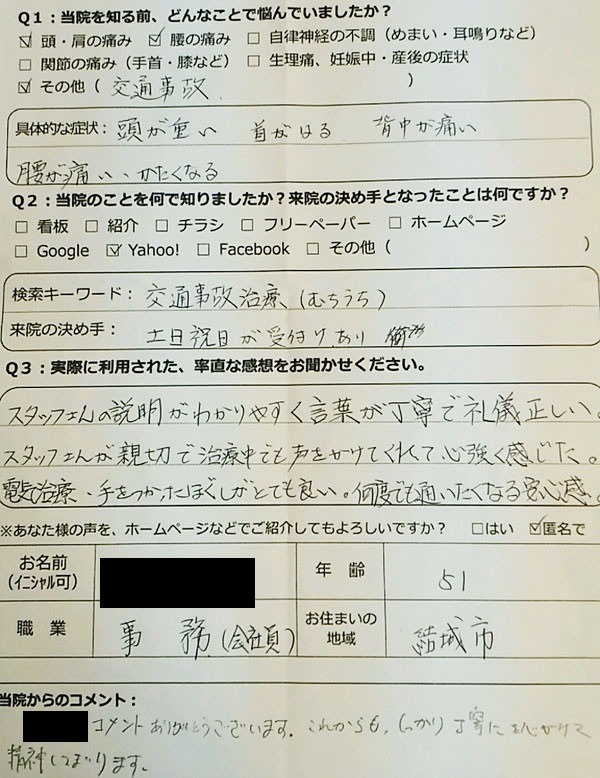 Q1：当院を知る前、どんなことで悩んでいましたか？
☑ 頭・肩の痛み ☑ 腰の痛み □ 自律神経の不調（めまい・耳鳴りなど）
□ 関節の痛み（手首・膝など） □ 生理痛、妊娠中・産後の症状
☑ その他（ 交通事故 ）
具体的な症状：頭が重い 首がはる 背中が痛い
腰が痛い、かたくなる
Q2：当院のことを何で知りましたか？来院の決め手となったことは何ですか？
□ 看板 □ 紹介 □ チラシ □ フリーペーパー □ ホームページ
□ Google ☑ Yahoo! □ Facebook □ その他（ ）
検索キーワード：交通事故治療（むちうち）
来院の決め手：土日祝日が受付けあり
Q3：実際に利用された、率直な感想をお聞かせください。
スタッフさんの説明がわかりやすく言葉が丁寧で礼儀正しい。
スタッフさんが親切で治療中でも声をかけてくれて心強く感じた。
電気治療・手をつかったほぐしがとても良い。何度でも通いたくなる安心感。
※あなた様の声を、ホームページなどでご紹介してもよろしいですか？ □はい ☑匿名で
お名前（イニシャル可） 年 齢 51
職 業 事 務（会社員） お住まいの地域 結城市
当院からのコメント：
コメントありがとうございます。これからも、しっかり丁寧に心がけて
精神してまいります。